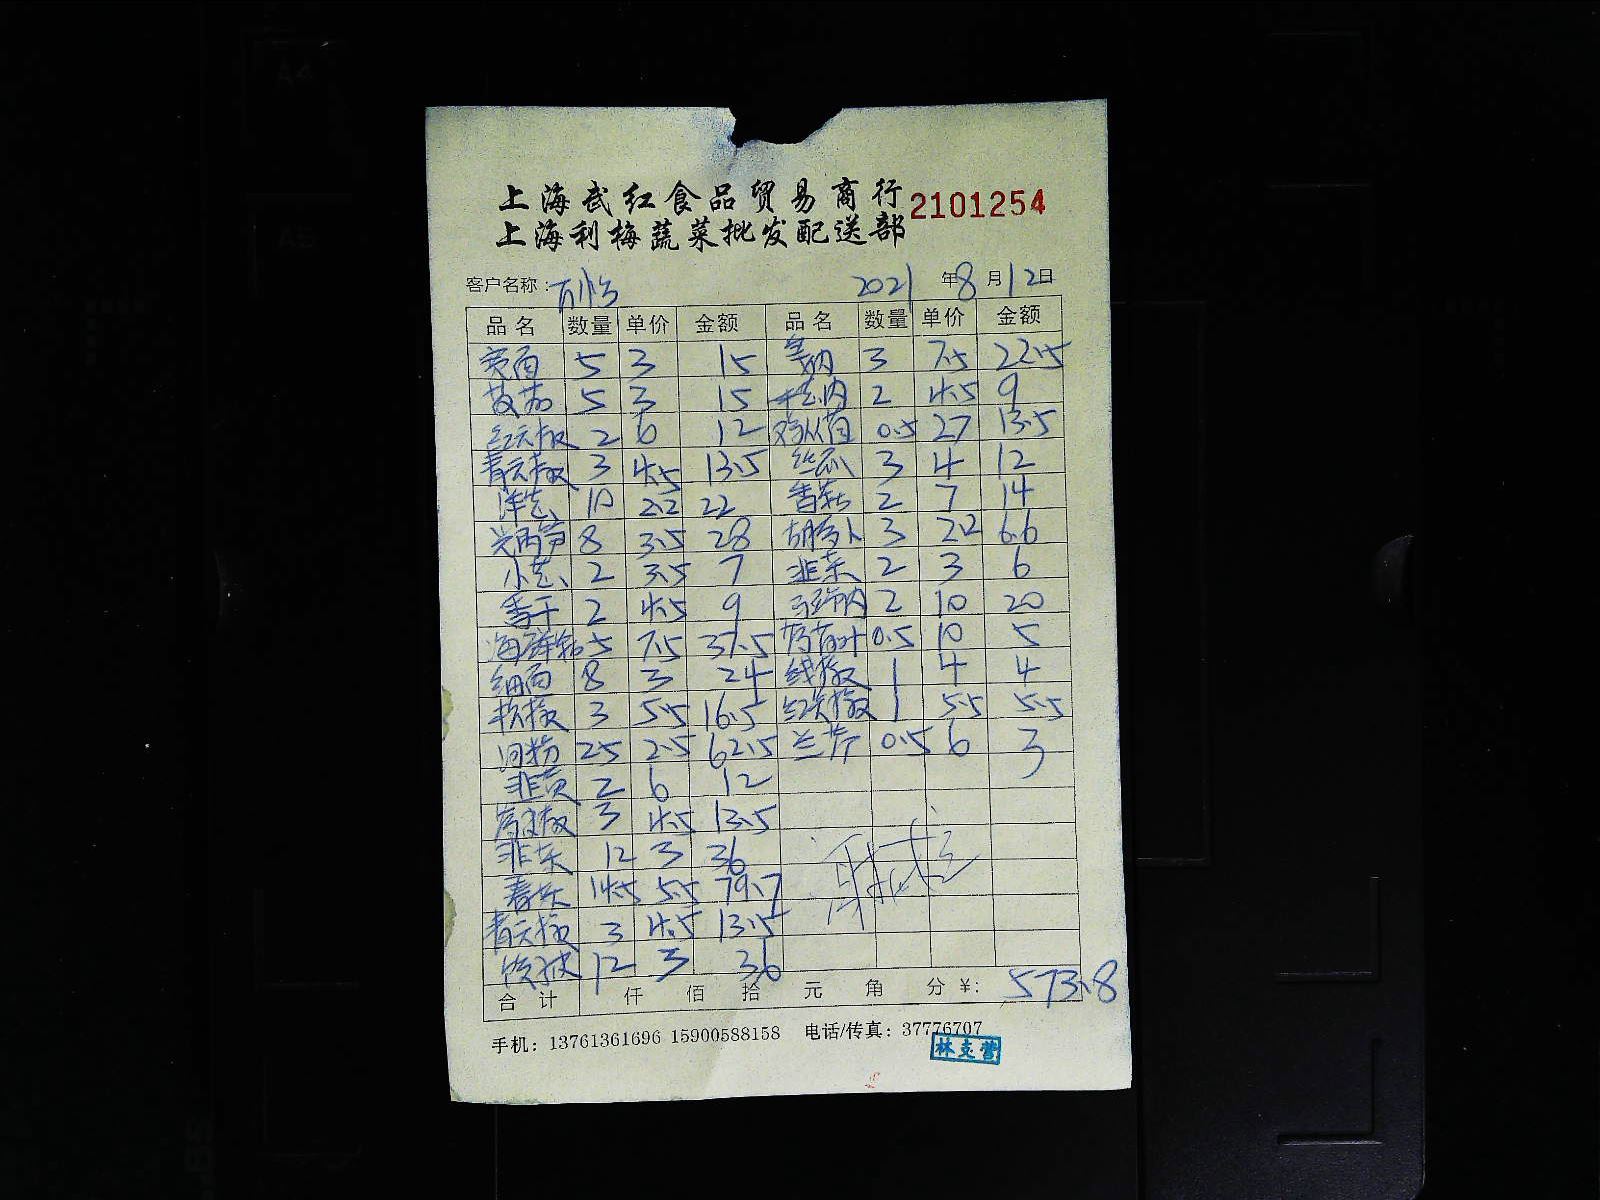 上海武红食品贸易商行
2101254
上海利梅蔬菜批发配送部
客户名称: 2021年8月12日
品名 数量 单价 金额 品名 数量 单价 金额
5 3 15 3 7.5 22.5
5 3 15 2 4.5 9
红元椒 2 6 12 鸡从菌 0.5 27 13.5
青元椒 3 4.5 13.5 丝瓜 3 4 12
洋芫 10 2.2 22 香菇 2 7 14
8 3.5 28 胡萝卜 3 2.2 6.6
小芫 2 3.5 7 韭菜 2 3 6
香干 2 4.5 9 2 10 20
海鲜菇 5 7.5 37.5 0.5 10 5
细面 8 3 24 线椒 1 4 4
杭椒 3 5.5 16.5 红尖椒 1 5.5 5.5
河粉 25 2.5 62.5 兰芹 0.5 6 3
韭黄 2 6 12
3 4.5 13.5
12 3 36
14.5 5.5 79.7
青元椒 3 4.5 13.5
12 3 36
合计 仟 佰 拾 元 角 分 ¥: 573.8
手机: 13761361696 15900588158 电话/传真: 37776707
林支营